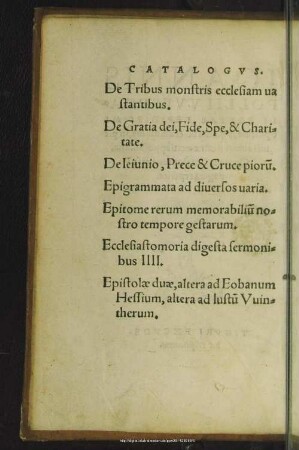 CATALOGVS.
De Tribus monstris ecclesiam ua
stantibus.
De Gratia dei, Fide, Spe, & Chari⸗
tate.
De Ieiunio, Prece & Cruce piorũ.
Epigrammata ad diuersos uaria.
Epitome rerum memorabiliũ no⸗
stro tempore gestarum.
Ecclesiastomoria digesta sermoni⸗
bus IIII.
Epistolæ duæ, altera ad Eobanum
Hessium, altera ad Iustũ Vuin⸗
therum.